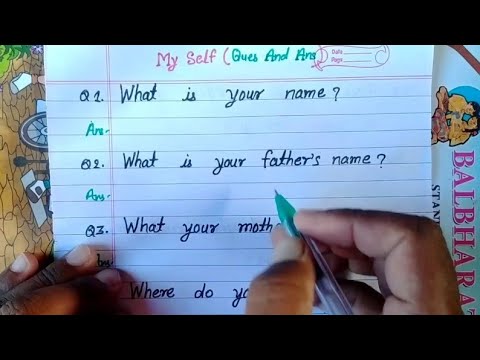 My Self (Ques And Ans)
Date
Page
Q1. What is your name?
Ans-
Q2. What is your father's name?
Ans-
Q3. What your
Where do
BALBHARA
STAN